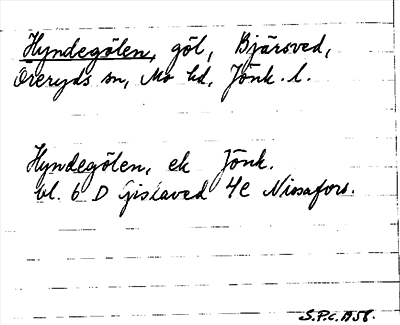 Hyndegölen, göl, Bjärsved,
Öreryds sn, Mo hd, Jönk. l.
Hyndegölen, ek Jönk.
bl. 6 D Gislaved 4e Nissafors.
S.P.C. 1958.